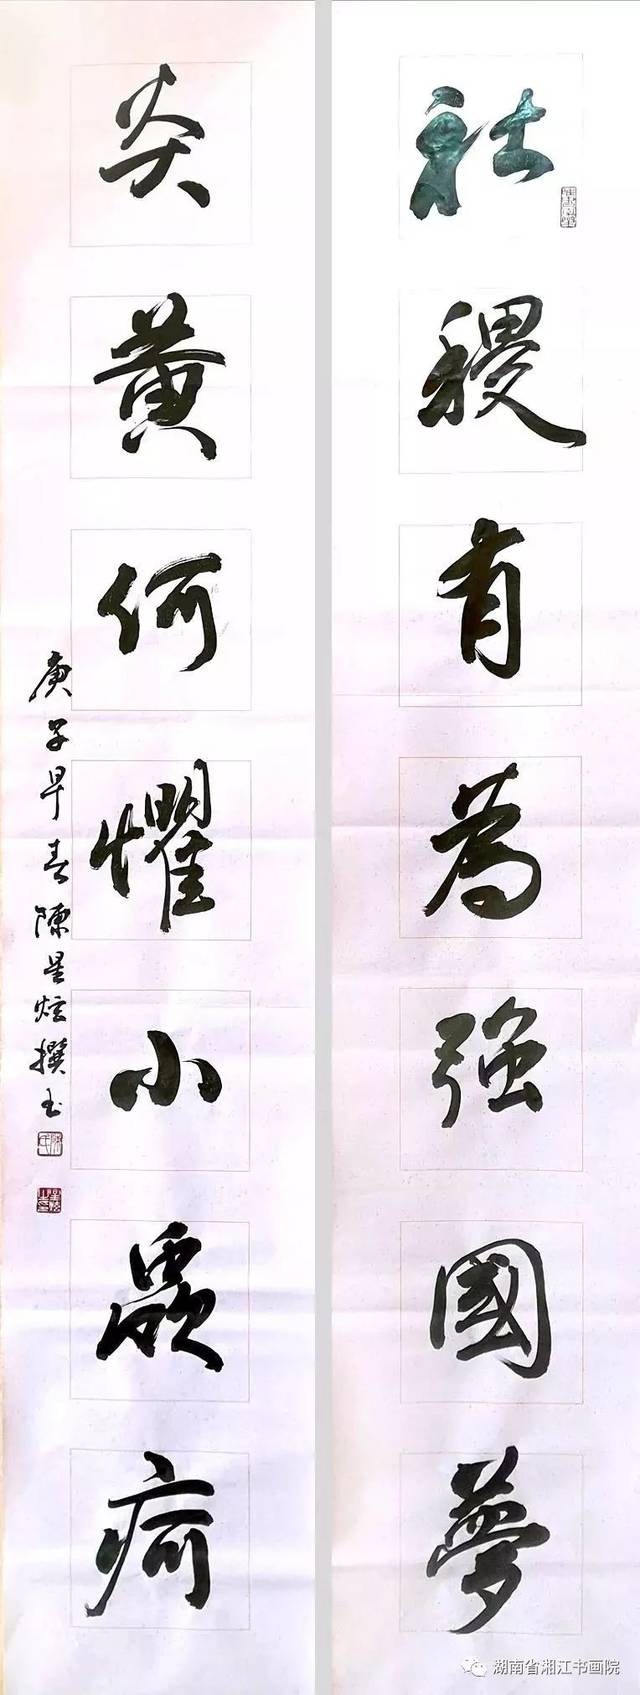 社稷有為强國夢
炎黄何懼小疴
庚子早春陳星炫撰书
湖南省湘江书画院